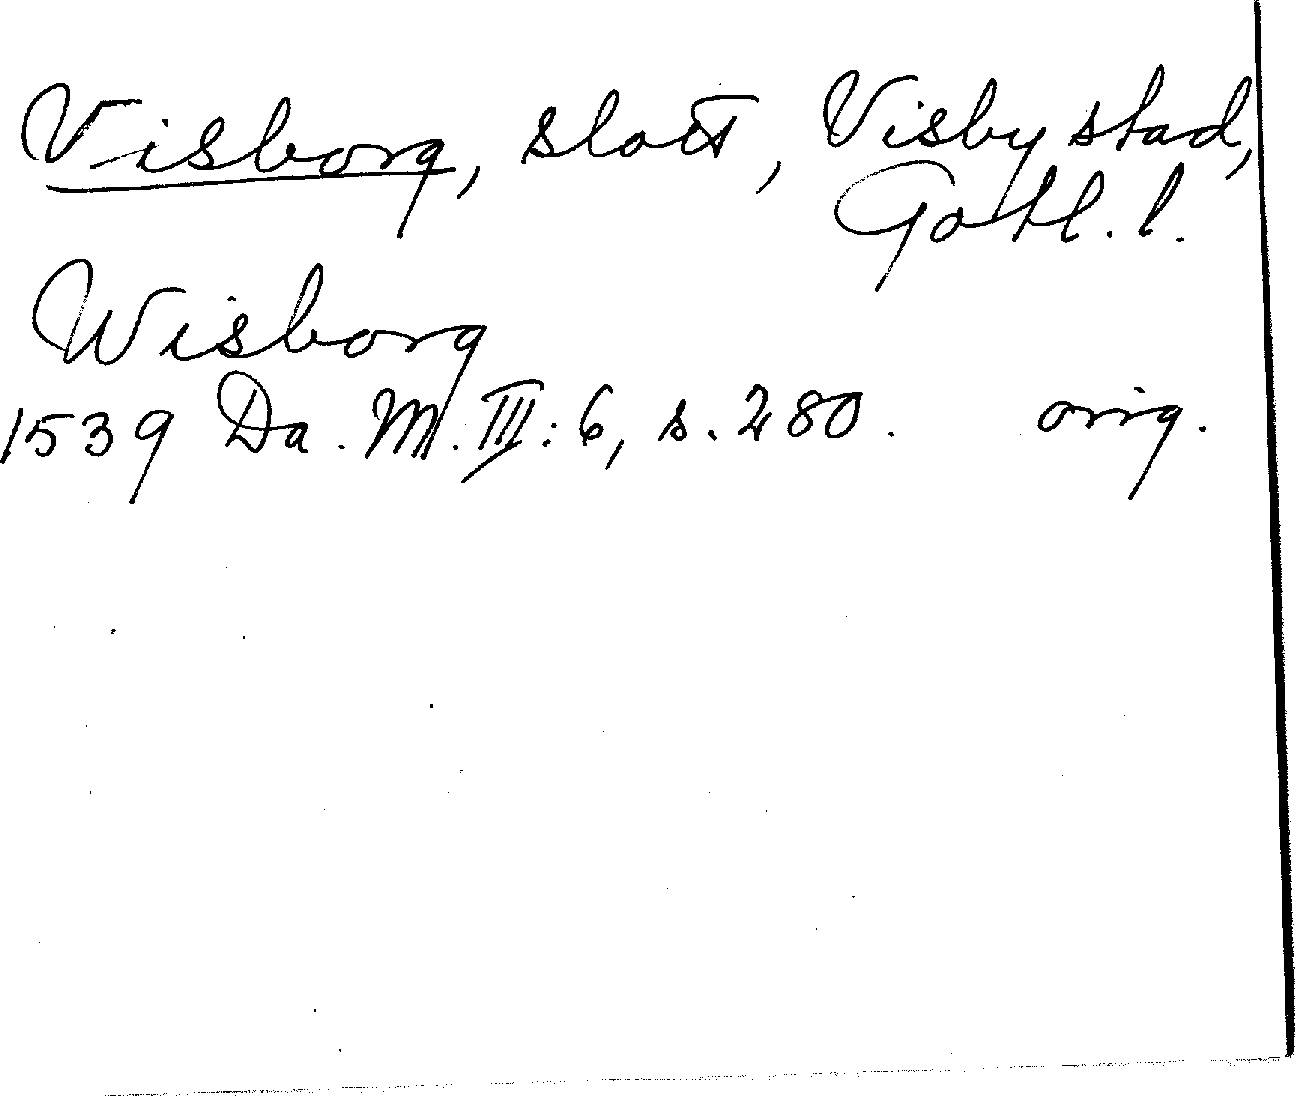 Visborg, slott, Visby stad,
Gotl. l.
Wisborg
1539 Da. M. III: 6, s. 280. orig.